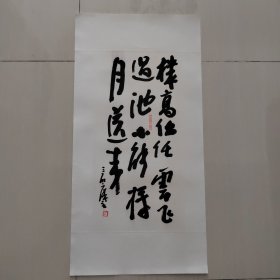 樓高但任雲飛
過池小能將
月送來